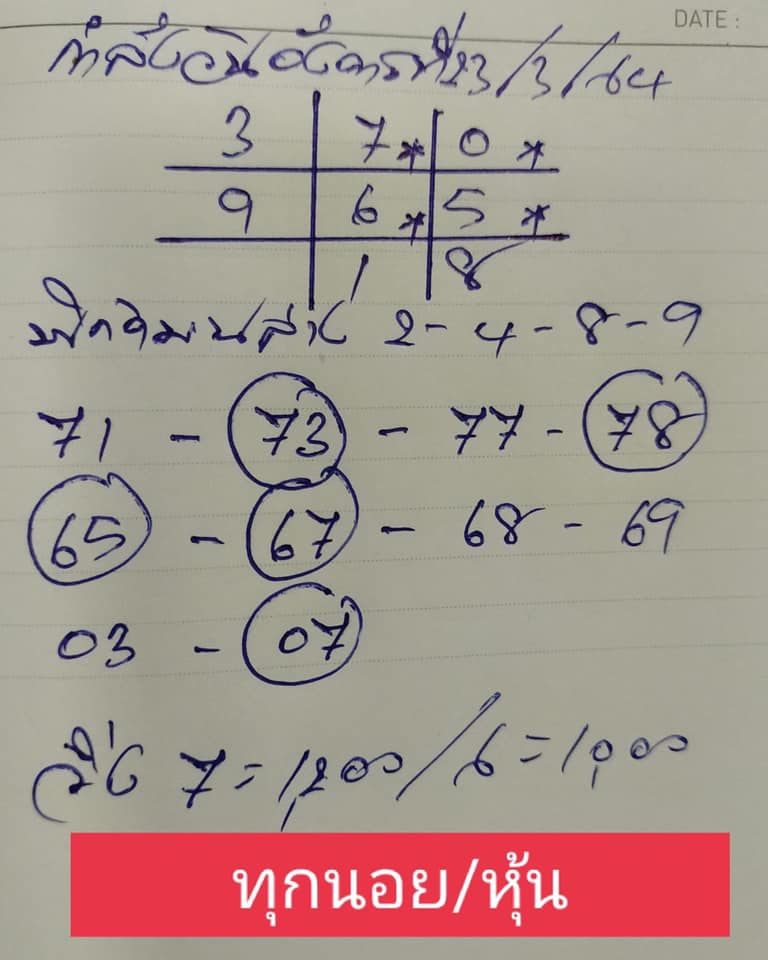 DATE :
กำลังวันอังคารที่23/3/64
3 7* 0*
9 6* 5*
1 8
2-4-8-9
71 - 73 - 77 - 78
65 - 67 - 68 - 69
03 - 07
วิ่ง 7=1,200/6=1,000
ทุกนอย/หุ้น